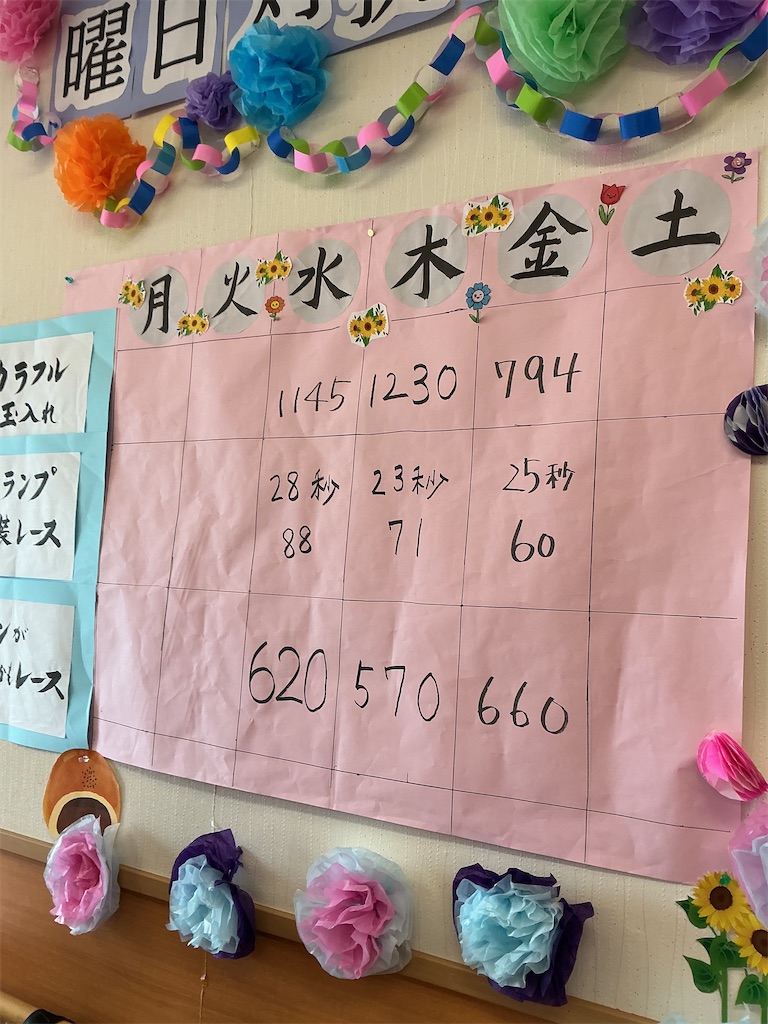 曜日対抗
月 火 水 木 金 土
カラフル
玉入れ
1145 1230 794
ランプ
装レース
28秒 23秒 25秒
88 71 60
ンが
レース
620 570 660